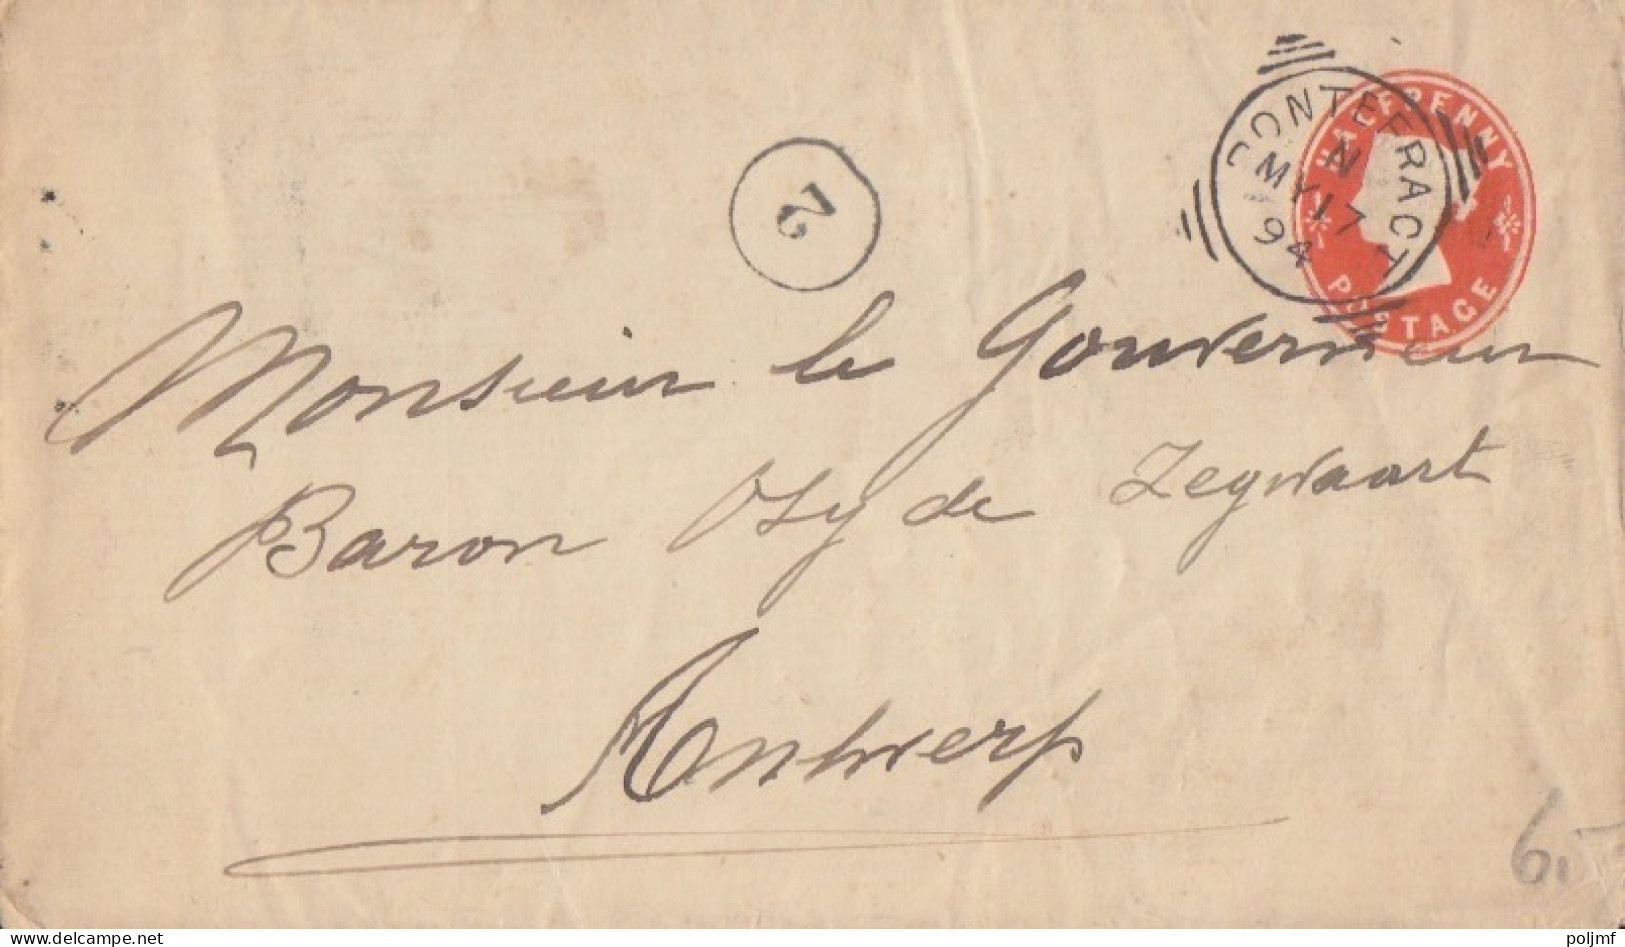 HALFPENNY
POSTAGE
PONTEFRACT
N
MY 17
94
2
Monsieur le Gouverneur
Baron Osy de Zegwaart
Antwerp
6,-
www.delcampe.net
poljmf